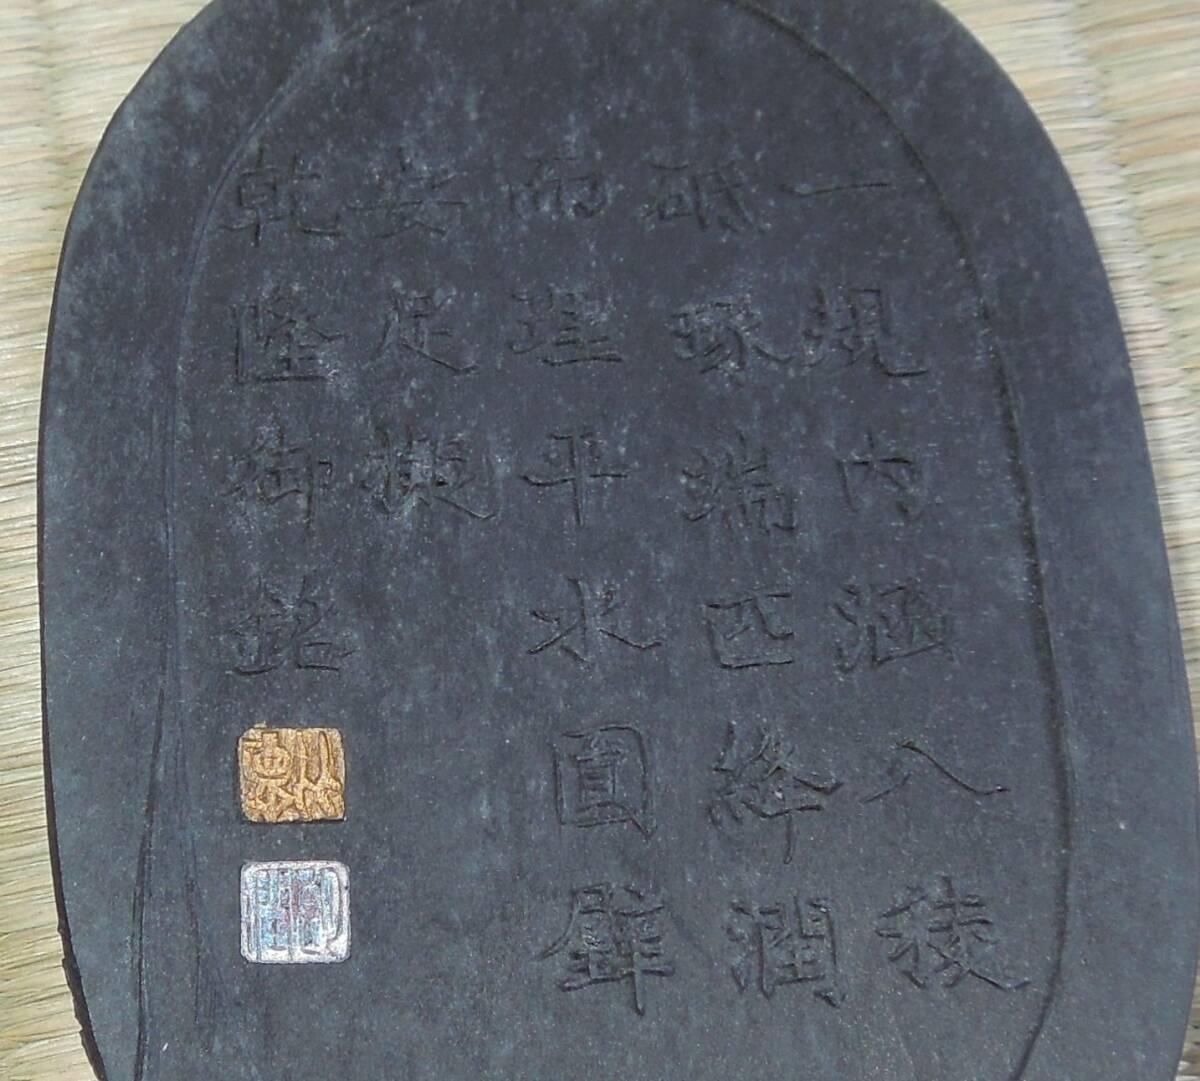 一規内涵八稜
砥琢端匹絳潤
而理平水圓璧
安足擬
乾隆御銘